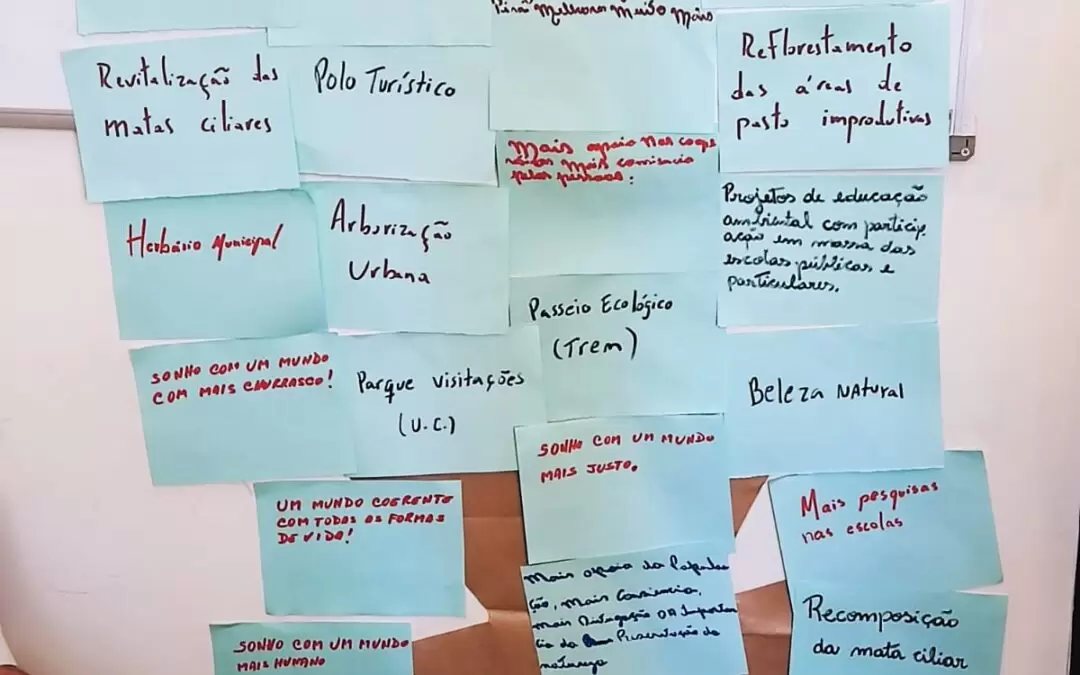 Revitalização das
matas ciliares
Herbário Municipal
SONHO COM UM MUNDO
COM MAIS CHURRASCO!
UM MUNDO COERENTE
COM TODAS AS FORMAS
DE VIDA!
SONHO COM UM MUNDO
MAIS HUMANO
Polo Turístico
Arborização
Urbana
Parque visitações
(U.C.)
Melhorar Muito Mais
Mais apoio nas coope
mais
pelas pessoas:
Passeio Ecológico
(Trem)
SONHO COM UM MUNDO
MAIS JUSTO.
Mais apoio da Popula
ção, mais Consiencia,
mais Divugação DA Importan
cia da Preservação da
natureza
Reflorestamento
das áreas de
pasto improdutivas
Projetos de educação
ambiental com particip
ação em massa das
escolas públicas e
particulares.
Beleza Natural
Mais pesquisas
nas escolas
Recomposição
da mata ciliar